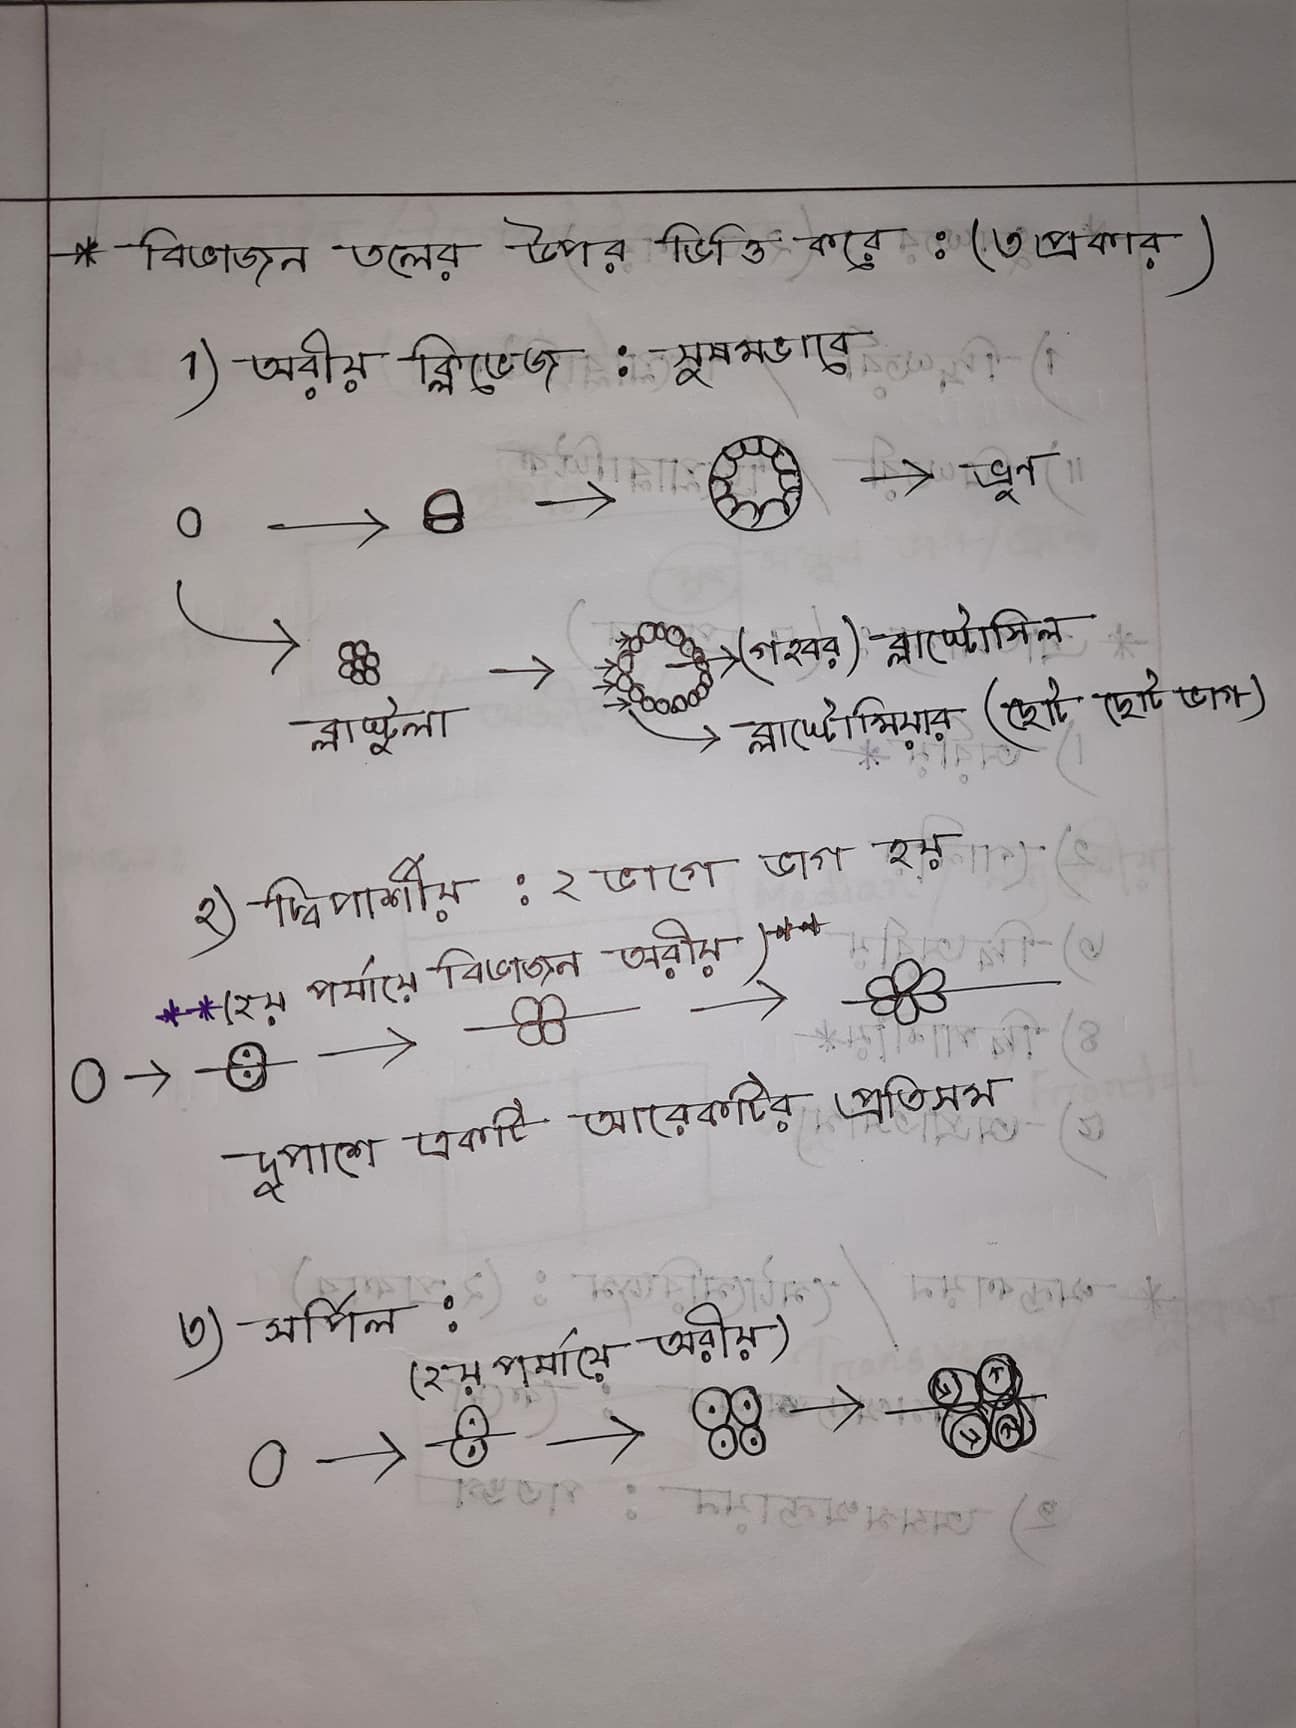 * বিভাজন তলের উপর ভিত্তি করে : (৩ প্রকার)
১) অরীয় ক্লিভেজ : সুষমভাবে
→ ভ্রূন
(গহবর) ব্লাস্টোসিল
ব্লাস্টুলা
ব্লাস্টোমিয়ার (ছোট ছোট ভাগ)
২) দ্বিপার্শীয় : ২ ভাগে ভাগ হয়
**(২য় পর্যায়ে বিভাজন অরীয়)**
দুপাশে একটি আরেকটির প্রতিসম
৩) সর্পিল :
(২য় পর্যায়ে অরীয়)